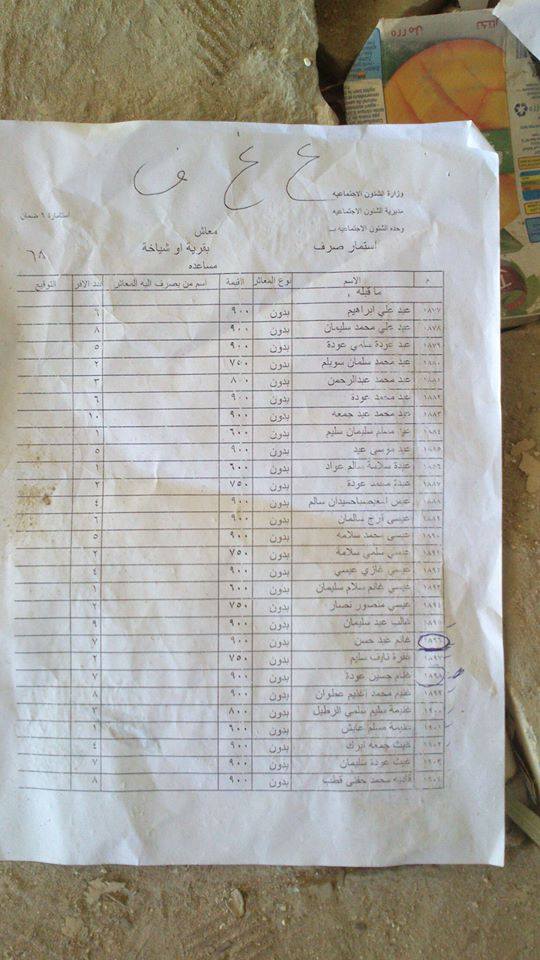 ع غ ف
وزارة الشئون الاجتماعيه
مديرية الشئون الاجتماعيه
استمارة ٩ ضمان
وحده الشئون الاجتماعيه ب
معاش
استمار صرف بقرية او شياخة
مساعده
٦٨
م الاسم نوع المعاش القيمة اسم من يصرف اليه المعاش عدد الافر التوقيع
ما قبله
١٨٧٧ عبد علي ابراهيم بدون ٩٠٠ ٦
١٨٧٨ عبد علي محمد سليمان بدون ٩٠٠ ٨
١٨٧٩ عبد عودة سلمي عودة بدون ٩٠٠ ٥
١٨٨٠ عبد محمد سلمان سويلم بدون ٧٤٠ ٢
١٨٨١ عبد محمد عبدالرحمن بدون ٨٠٠ ٣
١٨٨٢ عبد محمد عودة بدون ٩٠٠ ٦
١٨٨٣ عبد محمد عبد جمعه بدون ٩٠٠ ١٠
١٨٨٤ سليمان سليم بدون ٦٠٠
١٨٨٥ عبد موسي عبد بدون ٩٠٠ ٥
١٨٨٦ عبدة سلامة سالم عواد بدون ٦٠٠ ١
١٨٨٧ عبدة محمد عودة بدون ٧٥٠ ٢
١٨٨٨ سالم بدون ٩٠٠ ٤
١٨٨٩ عيسى سالمان بدون ٩٠٠ ٦
١٨٩٠ عيسى حمد سلامه بدون ٩٠٠ ٥
١٨٩١ عيسي سلمي سلامة بدون ٧٥٠ ٢
عيسي غازي عيسي بدون ٩٠٠ ٤
١٨٩٣ عيسي غانم سلام سليمان بدون ٦٠٠ ١
١٨٩٤ عيسي منصور نصار بدون ٧٥٠ ٢
١٨٩٥ غالب عيد سليمان بدون ٩٠٠ ٩
١٨٩٦ غانم عيد حسن بدون ٩٠٠ ٧
١٨٩٧ نايف سليم بدون ٧٥٠ ٢
١٨٩٨ حسين عودة بدون ٩٠٠ ٧
١٨٩٩ محمد علوان بدون ٩٠٠ ٨
١٩٠٠ سليم سلمي بدون ٨٠٠ ٣
مسلم عايش بدون ٦٠٠ ١
١٩٠٢ غيث جمعه بدون ٩٠٠ ٤
١٩٠٣ غيث عودة سليمان بدون ٩٠٠ ٧
١٩٠٤ محمد حفني قطب بدون ٩٠٠ ٨